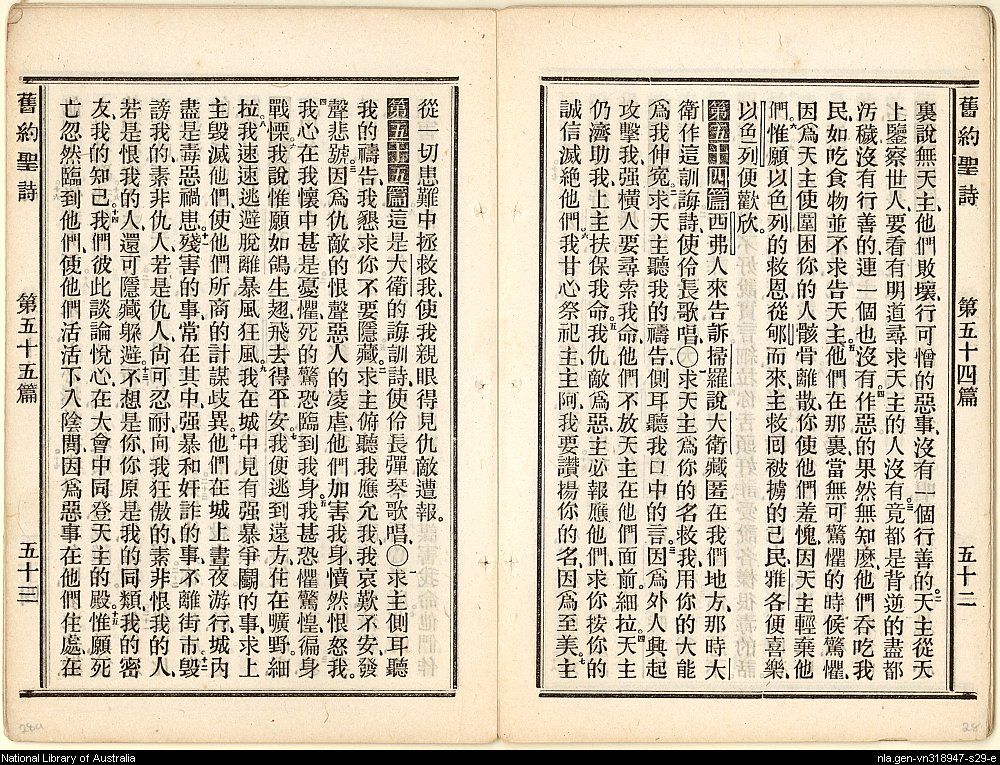 舊約聖詩 第五十四篇 五十二
裏說無天主、他們敗壞、行可憎的惡事、沒有一個行善的、二天主從天
上鑒察世人、要看有明道尋求天主的人沒有、三竟都是背逆的、盡都
汚穢、沒有行善的、連一個也沒有、四作惡的果然無知麽、他們吞吃我
民、如吃食物、並不求告天主、五他們在那裏當無可驚懼的時候驚懼、
因爲天主使圍困你的人骸骨離散、你使他們羞愧、因天主輕棄他
們、六惟願以色列的救恩從郇而來、主救回被擄的己民、雅各便喜樂、
以色列便歡欣。
第五十四篇 西弗人來告訴掃羅說、大衛藏匿在我們地方、那時大
衛作這訓誨詩、使伶長歌唱、〇一求天主爲你的名救我、用你的大能
爲我伸冤、二求天主聽我的禱告、側耳聽我口中的言、三因爲外人興起
攻擊我、强橫人要尋索我命、他們不放天主在他們面前、細拉、四天主
仍濟助我、上主扶保我命、五我仇敵爲惡、主必報應他們、求你按你的
誠信滅絕他們、六我甘心祭祀主、主阿、我要讚揚你的名、因爲至美、七主
從一切患難中拯救我、使我親眼得見仇敵遭報。
第五十五篇 這是大衛的誨訓詩、使伶長彈琴歌唱、〇一求主側耳聽
我的禱告、我懇求你不要隱藏、二求主俯聽我、應允我、我哀歎不安、發
聲悲號、三因爲仇敵的恨聲、惡人的凌虐、他們加害我身、憤然恨怒我。
四我心在我懷中甚是憂懼、死的驚恐臨到我身、五我甚恐懼驚惶、徧身
戰慄、六我說、惟願如鴿生翅、飛去得平安、七我便逃到遠方、住在曠野、細
拉、八我速速逃避、脫離暴風狂風、九我在城中見有强暴爭鬭的事、求上
主毀滅他們、使他們所商的計謀歧異、十他們在城上晝夜游行、城內
盡是毒惡禍患、十一殘害的事常在其中、强暴和奸詐的事、不離街市、十二毀
謗我的、素非仇人、若是仇人、尙可忍耐、向我狂傲的、素非恨我的人、
若是恨我的人、還可隱藏躲避、十三不想是你、你原是我的同類、我的密
友、我的知己、十四我們彼此談論悅心、在大會中同登天主的殿、十五惟願死
亡忽然臨到他們、使他們活活下入陰間、因爲惡事在他們住處、在
舊約聖詩 第五十五篇 五十三
28a
28
National Library of Australia
nla.gen-vn318947-s29-e